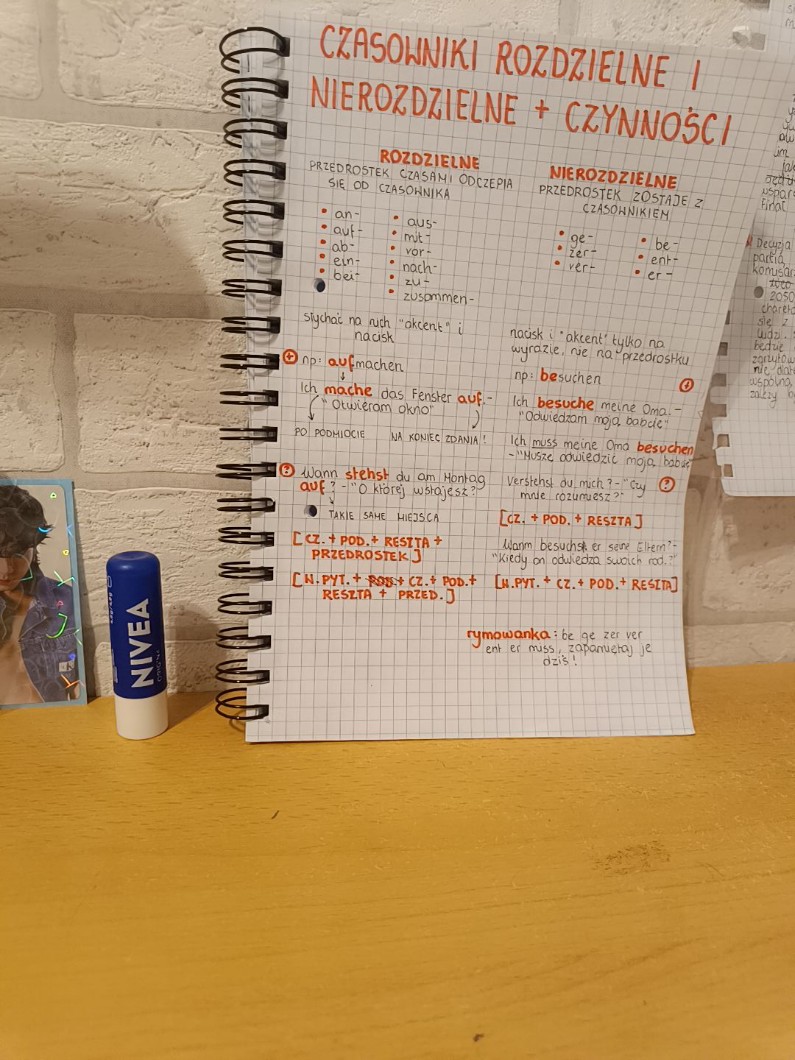 CZASOWNIKI ROZDZIELNE I
NIEROZDZIELNE + CZYNNOŚCI
ROZDZIELNE
PRZEDROSTEK CZASAMI ODCZEPIA
SIĘ OD CZASOWNIKA
• an-
• auf-
• ab-
• ein-
• bei-
• aus-
• mit-
• vor-
• nach-
• zu-
• zusammen-
słychać na nich "akcent" i
nacisk
+ np: aufmachen
Ich mache das Fenster auf.-
"Otwieram okno"
PO PODMIOCIE NA KONIEC ZDANIA!
? Wann stehst du am Montag
auf? - "O której wstajesz?"
TAKIE SAME MIEJSCA
[CZ. + POD. + RESZTA +
PRZEDROSTEK]
[W.PYT. + CZ. + POD. +
RESZTA + PRZED.]
NIEROZDZIELNE
PRZEDROSTEK ZOSTAJE Z
CZASOWNIKIEM
• ge-
• zer-
• ver-
• be-
• ent-
• er-
nacisk i "akcent" tylko na
wyrazie, nie na przedrostku
np: besuchen +
Ich besuche meine Oma.-
"Odwiedzam moją babcie"
Ich muss meine Oma besuchen
-"Muszę odwiedzić moją babcie
Verstehst du mich? - "Czy
mnie rozumiesz?" ?
[CZ. + POD. + RESZTA]
Wann besuchst er seine Eltern? -
"Kiedy on odwiedza swoich rod.?"
[W.PYT. + CZ. + POD. + RESZTA]
rymowanka: be ge zer ver
ent er miss, zapamiętaj je
dziś!
NIVEA
Decyzja
partia
2050
się z
będzie
nie